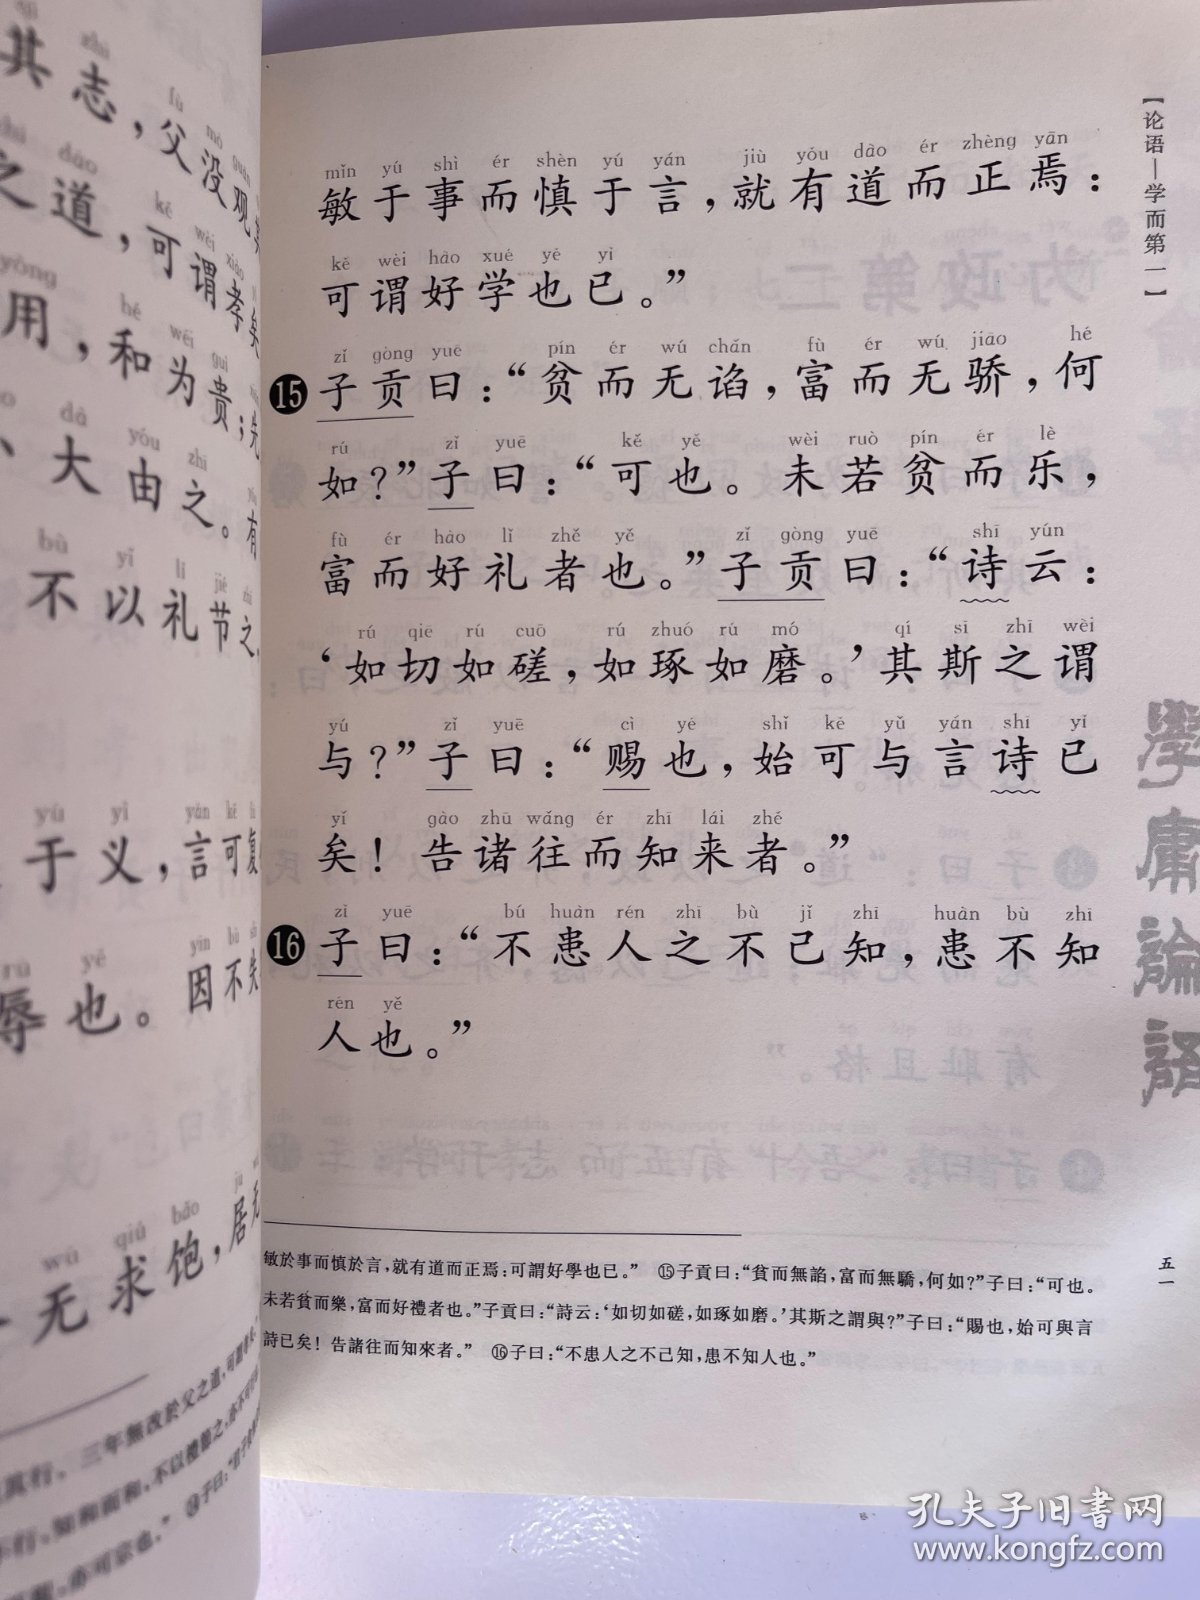 【论语—学而第一】
mǐn yú shì ér shèn yú yán jiù yǒu dào ér zhèng yān
敏于事而慎于言，就有道而正焉：
kě wèi hào xué yě yǐ
可谓好学也已。”
zǐ gòng yuē pín ér wú chǎn fù ér wú jiāo hé
⑮子贡曰：“贫而无谄，富而无骄，何
rú zǐ yuē kě yě wèi ruò pín ér lè
如？”子曰：“可也。未若贫而乐，
fù ér hào lǐ zhě yě zǐ gòng yuē shī yún
富而好礼者也。”子贡曰：“诗云：
rú qiē rú cuō rú zhuó rú mó qí sī zhī wèi
‘如切如磋，如琢如磨。’其斯之谓
yú zǐ yuē cì yě shǐ kě yǔ yán shī yǐ
与？”子曰：“赐也，始可与言诗已
yǐ gào zhū wǎng ér zhī lái zhě
矣！告诸往而知来者。”
zǐ yuē bú huàn rén zhī bù jǐ zhī huàn bù zhī
⑯子曰：“不患人之不己知，患不知
rén yě
人也。”
敏於事而慎於言，就有道而正焉：可謂好學也已。” ⑮子貢曰：“貧而無諂，富而無驕，何如？”子曰：“可也。
未若貧而樂，富而好禮者也。”子貢曰：“詩云：‘如切如磋，如琢如磨。’其斯之謂與？”子曰：“賜也，始可與言
詩已矣！告諸往而知來者。” ⑯子曰：“不患人之不己知，患不知人也。”
學庸論語
五一
其志，父没观其
之道，可谓孝矣
用，和为贵；先
、大由之。有
不以礼节之，
于义，言可复
辱也。因不失
无求饱，居无
孔夫子旧书网
www.kongfz.com